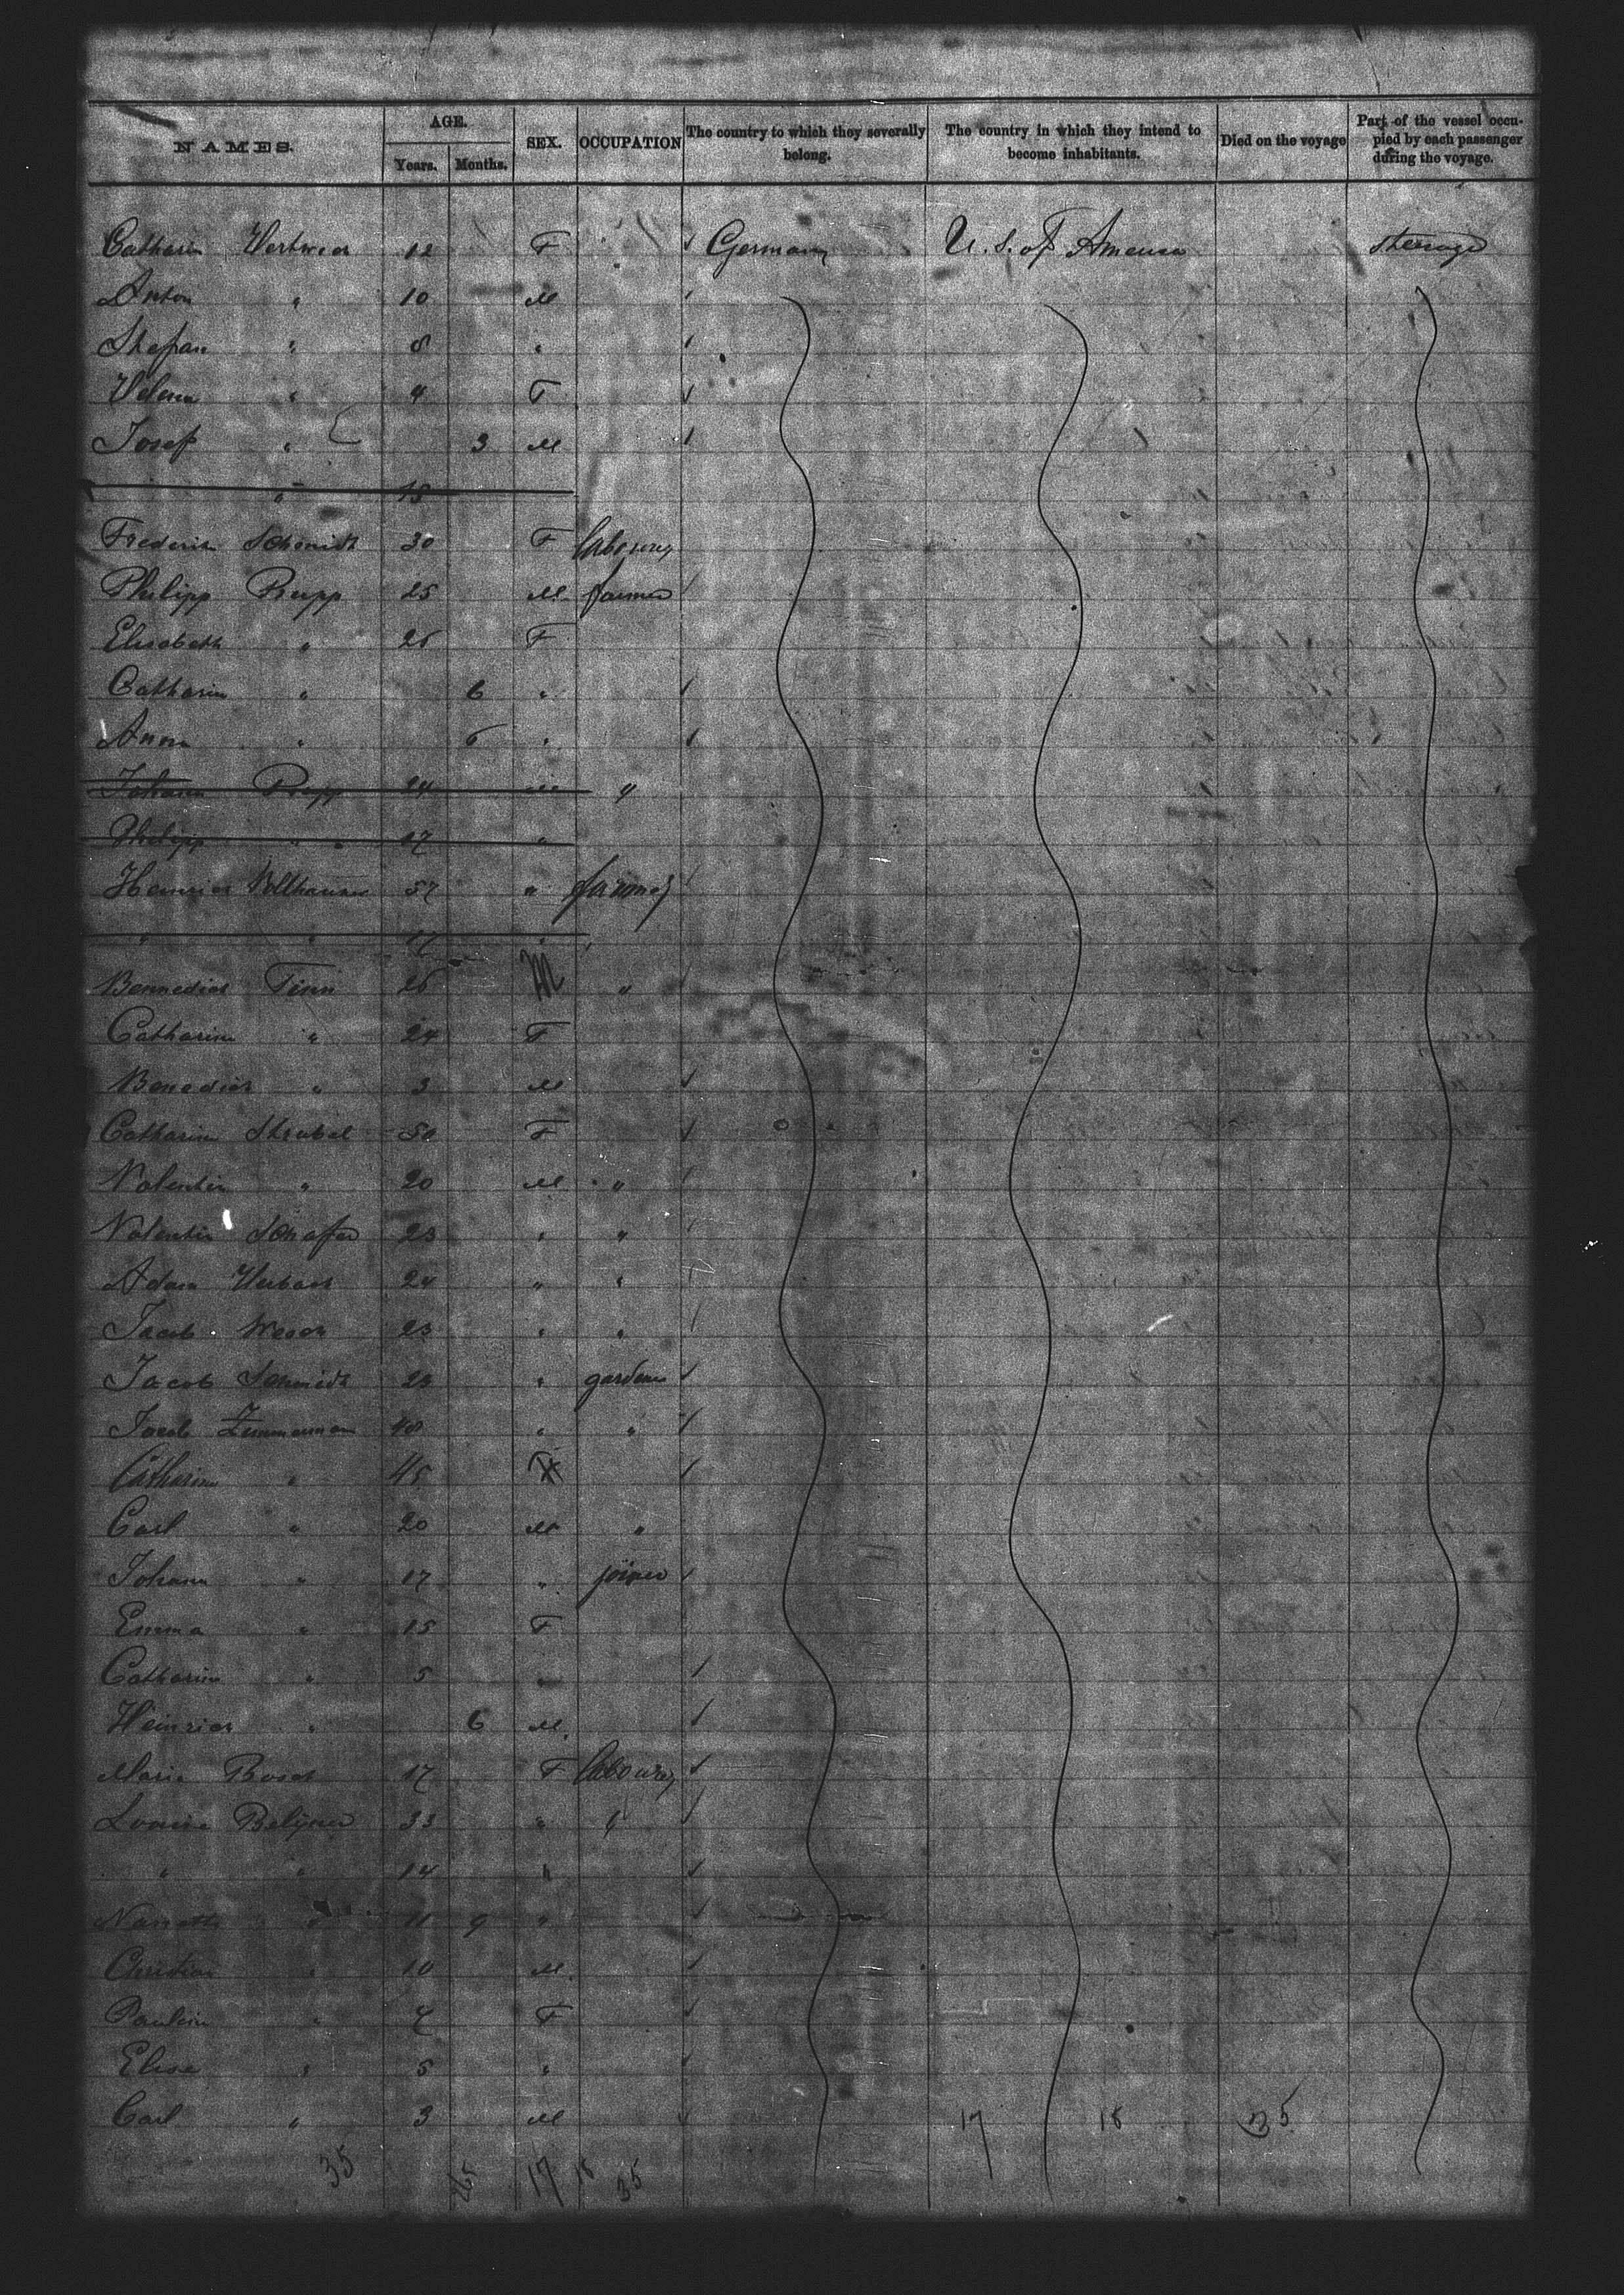 NAMES. AGE. SEX. OCCUPATION The country to which they severally belong. The country in which they intend to become inhabitants. Died on the voyage Part of the vessel occupied by each passenger during the voyage.
Years. Months.
Catharin 12 F Germany U. S. of America steerage
Anton " 10 M
Stefan " 8 "
Helena " 4 F
Josef " 3 M
" 18
Frederik Schmidt 30 F labourer
Philipp Rupp 25 M farmer
Elisabeth " 25 F
Catharin " 6 "
Anna " 6 "
Johann Rupp 24 M "
Philipp " 17 "
Heinrich 57 " farmer
" " "
Bennedict Finn 26 M "
Catharin " 24 F
Benedict " 3 M
Catharin Strubel 50 F
Valentin " 20 M "
Valentin Schafer 23 " "
Adam 24 " "
Jacob 23 " "
Jacob Schmidt 23 " gardener
Jacob Zimmermann 48 " "
Catharina " 45 F
Carl " 20 M "
Johann " 17 " joiner
Emma " 15 F
Catharin " 5 "
Heinrich " 6 M
Marie Bosch 17 F labourer
Louise 33 " "
" " 14 "
Nanette " 11 9 "
Christian " 10 M
Paulin " 7 F
Elise " 5 "
Carl " 3 M 17 18 35
35 17 18 35